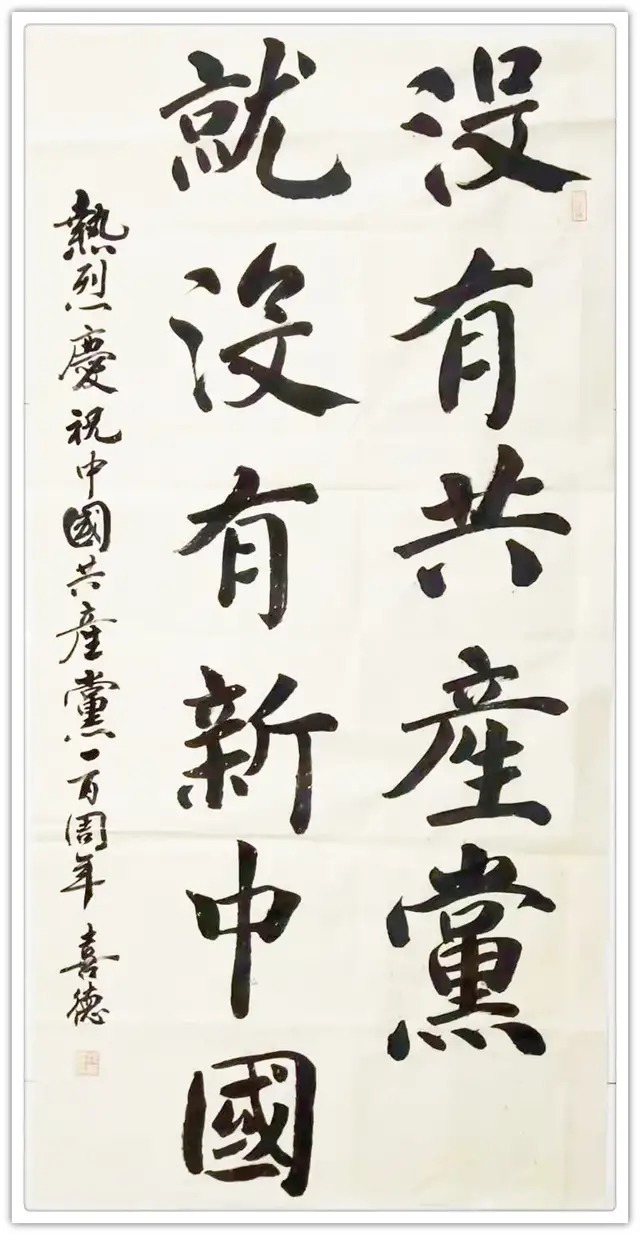 没有共産黨
就没有新中國
熱烈慶祝中國共産黨一百周年 喜德